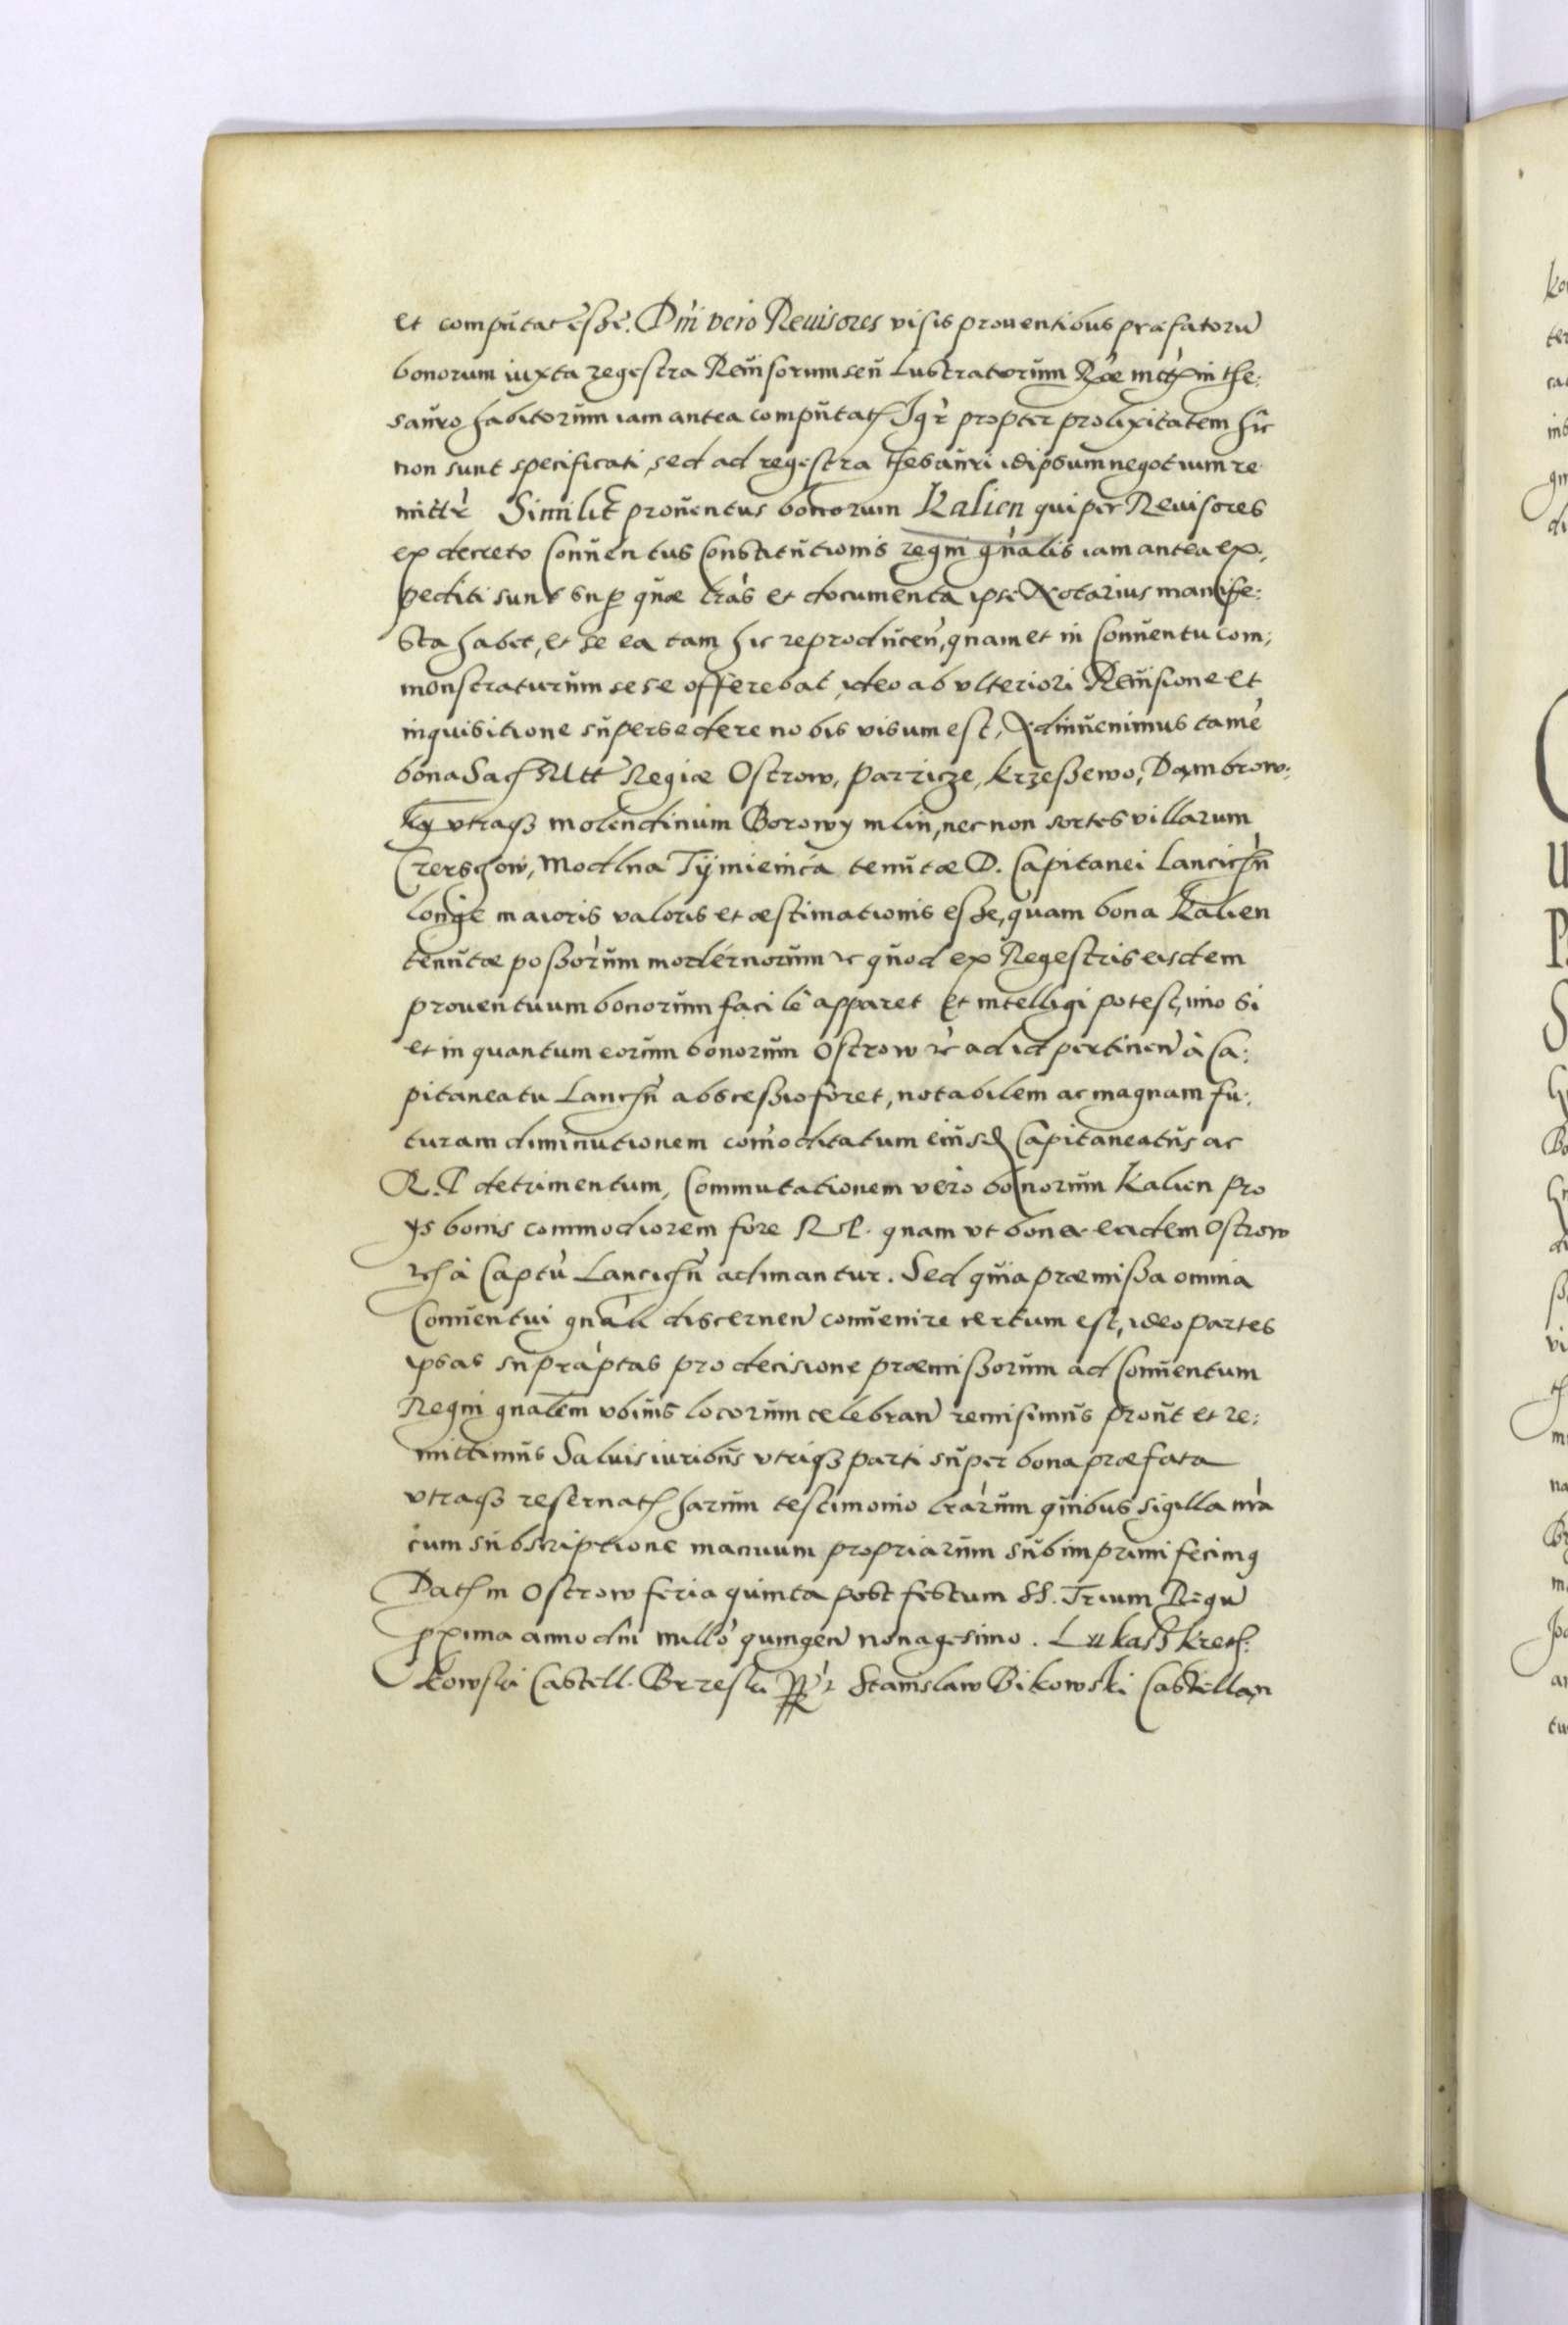 et computat esße. Dni vero Reuisores visis prouentibus præfatorū
bonorum iuxta regestra Reuisorum seu Lustratorum Ræ mttis in the:
sauro habitorum iam antea computat Igr propter prolixitatem hic
non sunt specificati, sed ad regestra thesauri idipsum negotium re
mittr Similit prouentus bonorum Kalien qui per Reuisores
ex decreto Conuentus Constitutionis regni gnalis iam antea ex:
pediti sunt sup quæ lras et documenta ipse Notarius manife:
sta habet, et se ea tam hic reproducen, quam et in Conuentu com:
monstraturum sese offerebat, ideo ab vlteriori Reuisione et
inquisitione supersedere nobis visum est, Adinuenimus tamē
bona Sac Mtt Regiæ Ostrow, parzicze, krzeßewo, Dambrow:
ky vtraqz molendinum Borowy mlin, nec non sortes villarum
Czerschow, Modlna Tÿmieinica tenutæ D. Capitanei Lancicn
longe maioris valoris et æstimationis esse, quam bona Kalien
tenutæ poßorum modernorum rc quod ex Regestris eisdem
prouentuum bonorum facile apparet Et intelligi potest, imo si
et in quantum eorum bonorum Ostrow rc ad id pertinen à Ca:
pitaneatu Lancn abscessio foret, notabilem ac magnam fu:
turam diminutionem comoditatum eiusd Capitaneatus ac
R. P detrimentum, Commutationem vero bonorum Kalien pro
ÿs bonis commodiorem fore R P. quam vt bona eadem Ostrow
rc à Captu Lancicn adimantur. Sed quia præmißa omnia
Conuentui gnali discernen conuenire certum est, ideo partes
ipsas supraptas pro decisione præmißorum ad Conuentum
Regni gnalem vbiuis locorum celebran remisimus prout et re:
mittimus Saluis iuribus vtriqz parti super bona præfata
vtraqz reseruat harum testimonio lrarum quibus sigilla nra
cum subscriptione manuum propriarum subimprimi fecimq
Dat in Ostrow feria quinta post festum SS. Trium Regū
pxima anno dni millo quingen nonagesimo. Lukasz kretz:
kowski Castell. Brzeski Stanislaw Bikowski Castellan